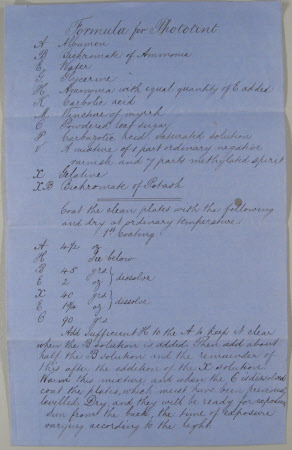 Formula for Phototint
A Albumen
B Bichromate of Ammonia
E Water
G Glycerine
H Ammonia with equal quantity of E added
K Carbolic acid
M Tincture of myrrh
C Powdered loaf sugar
P acid saturated solution
V A mixture of 1 part ordinary negative
varnish and 7 parts methylated spirit
X Gelatine
XB Bichromate of Potash
Coat the clean plates with the following
and dry at ordinary temperature
1st Coating
A 4½ oz
H See below
B 45 grs
E 2 oz } dissolve
X 40 grs
E oz } dissolve
C 90 grs
Add sufficient H to the A to keep it clear
when the B solution is added. Then add about
half the B solution and the remainder of
this after the addition of the X solution
Warm this mixture and when the C is dissolved
coat the plates, which must have been previously
levelled. Dry, and they will be ready for exposure
sun from the back, the time of exposure
varying according to the light